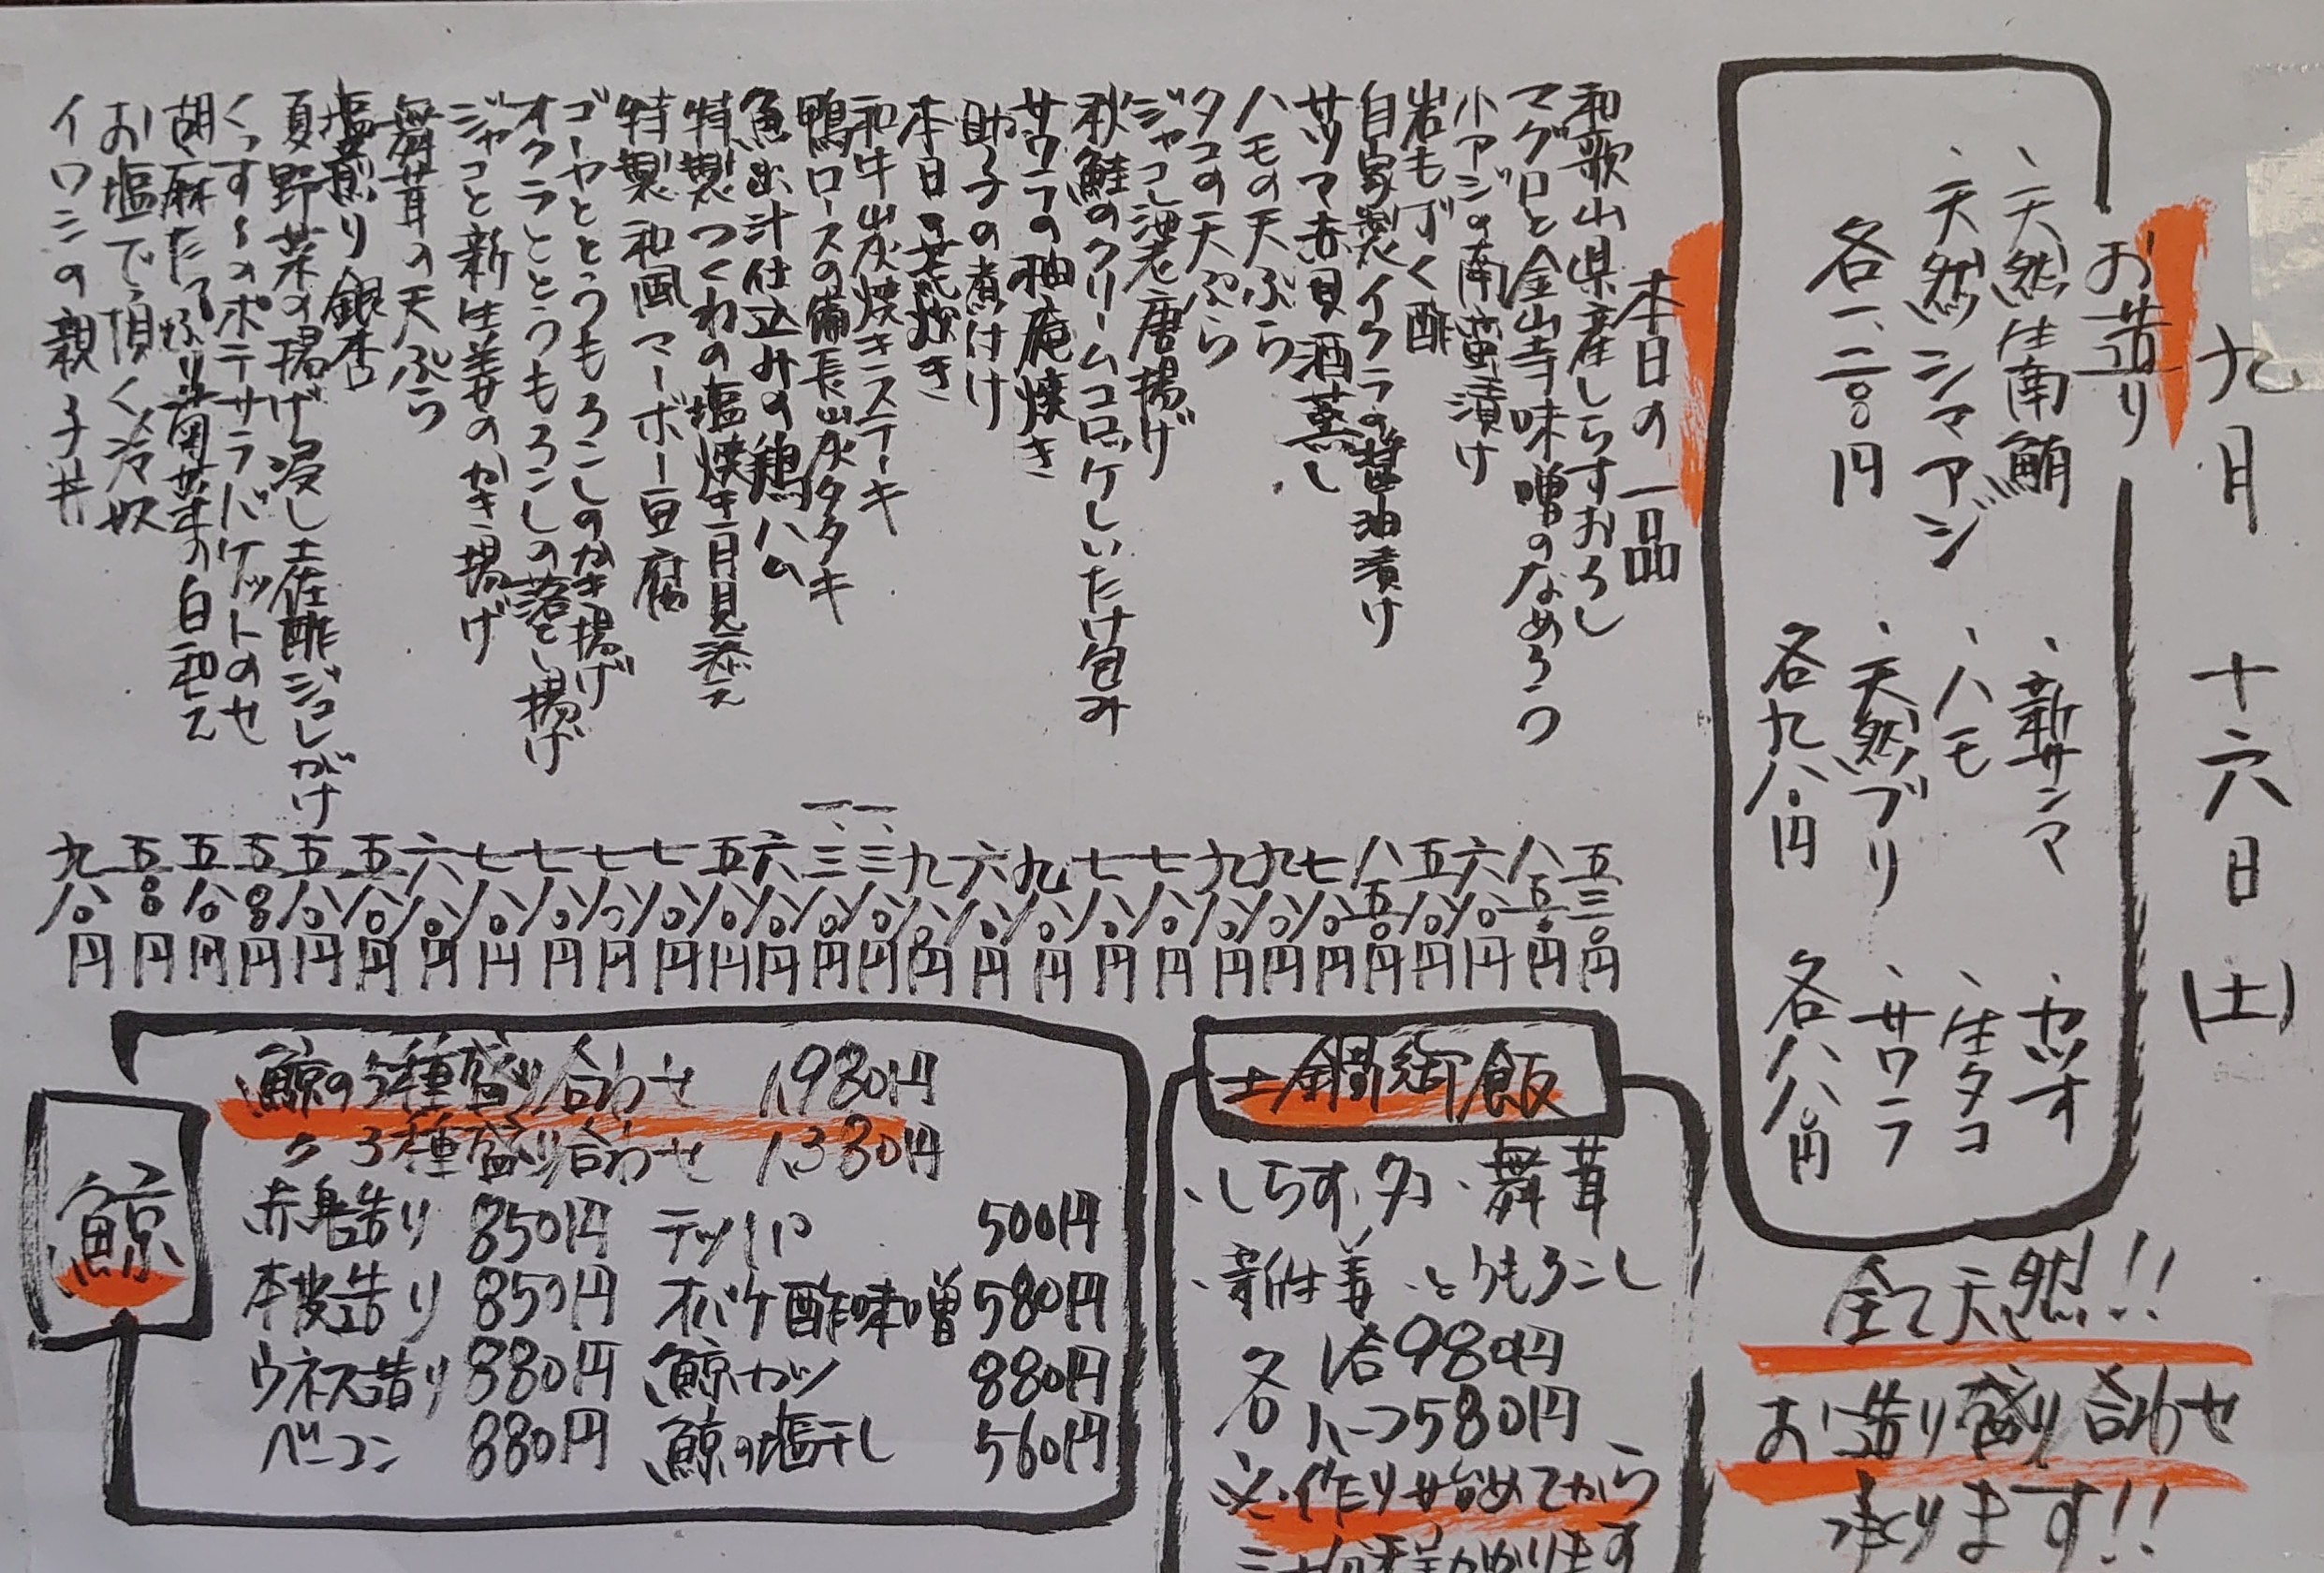 九月 十六日 (土)
お造り
、天然生南鮪
、天然シマアジ
各一、二〇〇円
、新サンマ
、ハモ
、天然ブリ
各九八〇円
、カツオ
、生タコ
、サワラ
各八八〇円
全て天然!!
お造り盛り合わせ
承ります!!
本日の一品
和歌山県産しらすおろし 五三〇円
マグロと金山寺味噌のなめろう 八五〇円
小アジの南蛮漬け 六八〇円
岩もずく酢 五八〇円
自家製イクラの醤油漬け 八五〇円
サツマ赤貝酒蒸し 七八〇円
ハモの天ぷら 九八〇円
タコの天ぷら 九八〇円
ジャコし漉唐揚げ 七八〇円
秋鮭のクリームコロッケしいたけ包み 七八〇円
サワラの柚庵焼き 九八〇円
助子の煮付け 六八〇円
本日の荒炊き 九八〇円
和牛炭焼きステーキ 一、三八〇円
鴨ロースの備長炭タタキ 一、三八〇円
魚出汁仕込みの鶏ハム 六八〇円
特製つくねの塩焼き月見添え 五八〇円
特製和風マーボー豆腐 七八〇円
ゴーヤととうもろこしのかき揚げ 七八〇円
オクラととうもろこしの落とし揚げ 七八〇円
ジャコと新生姜のかき揚げ 七八〇円
舞茸の天ぷら 六八〇円
塩煎り銀杏 五八〇円
夏野菜の揚げ浸し土佐酢ジュレがけ 五八〇円
のポテサラバケットのせ 五五〇円
胡麻たっぷり菊菜の白和え 五八〇円
お塩で頂く冷奴 五〇〇円
イワシの親子丼 九八〇円
土鍋御飯
、しらす、タコ、舞茸
、新生姜、とうもろこし
各 1合980円
各 ハーフ580円
※作り始めてから
三十分程かかります
鯨
鯨の5種盛り合わせ 1,980円
〃 3種盛り合わせ 1,330円
赤身造り 850円
本皮造り 850円
ウネス造り 880円
ベーコン 880円
テッパ 500円
オバケ酢味噌 580円
鯨カツ 880円
鯨の塩干し 560円